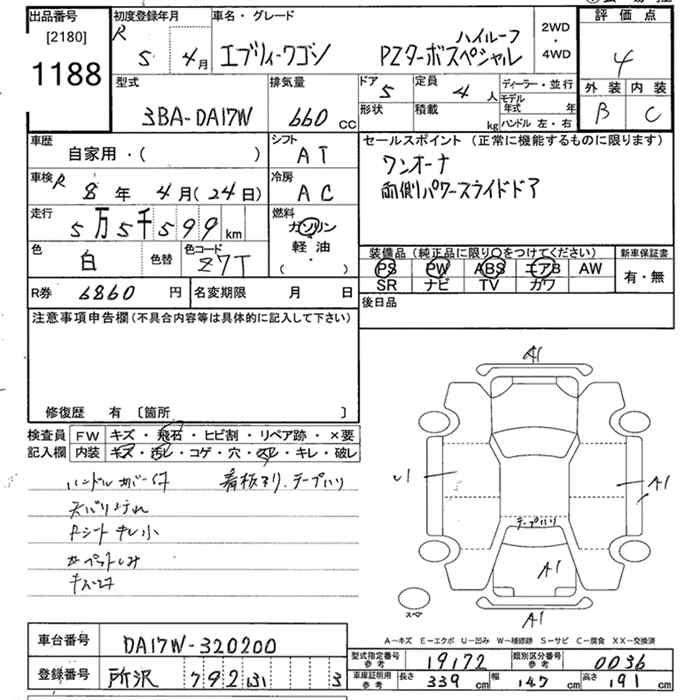 出品番号 [2180] 1188
初度登録年月 R 5 4月
車名・グレード エブリィワゴン PZターボスペシャル ハイルーフ
2WD・4WD
評価点 4
外装 B 内装 C
型式 3BA-DA17W
排気量 660 cc
ドア 5 定員 4 人
形状 積載 kg
ディーラー・並行
モデル年式 年
ハンドル 左・右
車歴 自家用・( )
シフト AT
車検 R 8 年 4 月(24日)
冷房 AC
走行 5万5千599 km
燃料 ガソリン 軽油 ( ・ )
色 白 色替 色コード Z7T
セールスポイント(正常に機能するものに限ります)
ワンオーナ
両側パワースライドドア
装備品(純正品に限り○をつけてください)
PS PW ABS エアB AW
SR ナビ TV カワ
新車保証書 有・無
R券 6860 円 名変期限 月 日
後日品
注意事項申告欄(不具合内容等は具体的に記入して下さい)
修復歴 有 [箇所 ]
検査員記入欄
FW キズ・飛石・ヒビ割・リペア跡・×要
内装 キズ・汚レ・コゲ・穴・スレ・キレ・破レ
ハンドルカバー付 看板ヨリ、テープハリ
天バリ汚れ
Pシートキレ小
カーペットしみ
A1
U1
A1
A1
テープハリ
A1
A1
スペア
A-キズ E-エクボ U-凹み W-補修跡 S-サビ C-腐食 XX-交換済
車台番号 DA17W-320200
登録番号 所沢 792 い 3
型式指定番号 参考 19172 類別区分番号 参考 0036
車庫証明用 参考 長さ 339 cm 幅 147 cm 高さ 191 cm